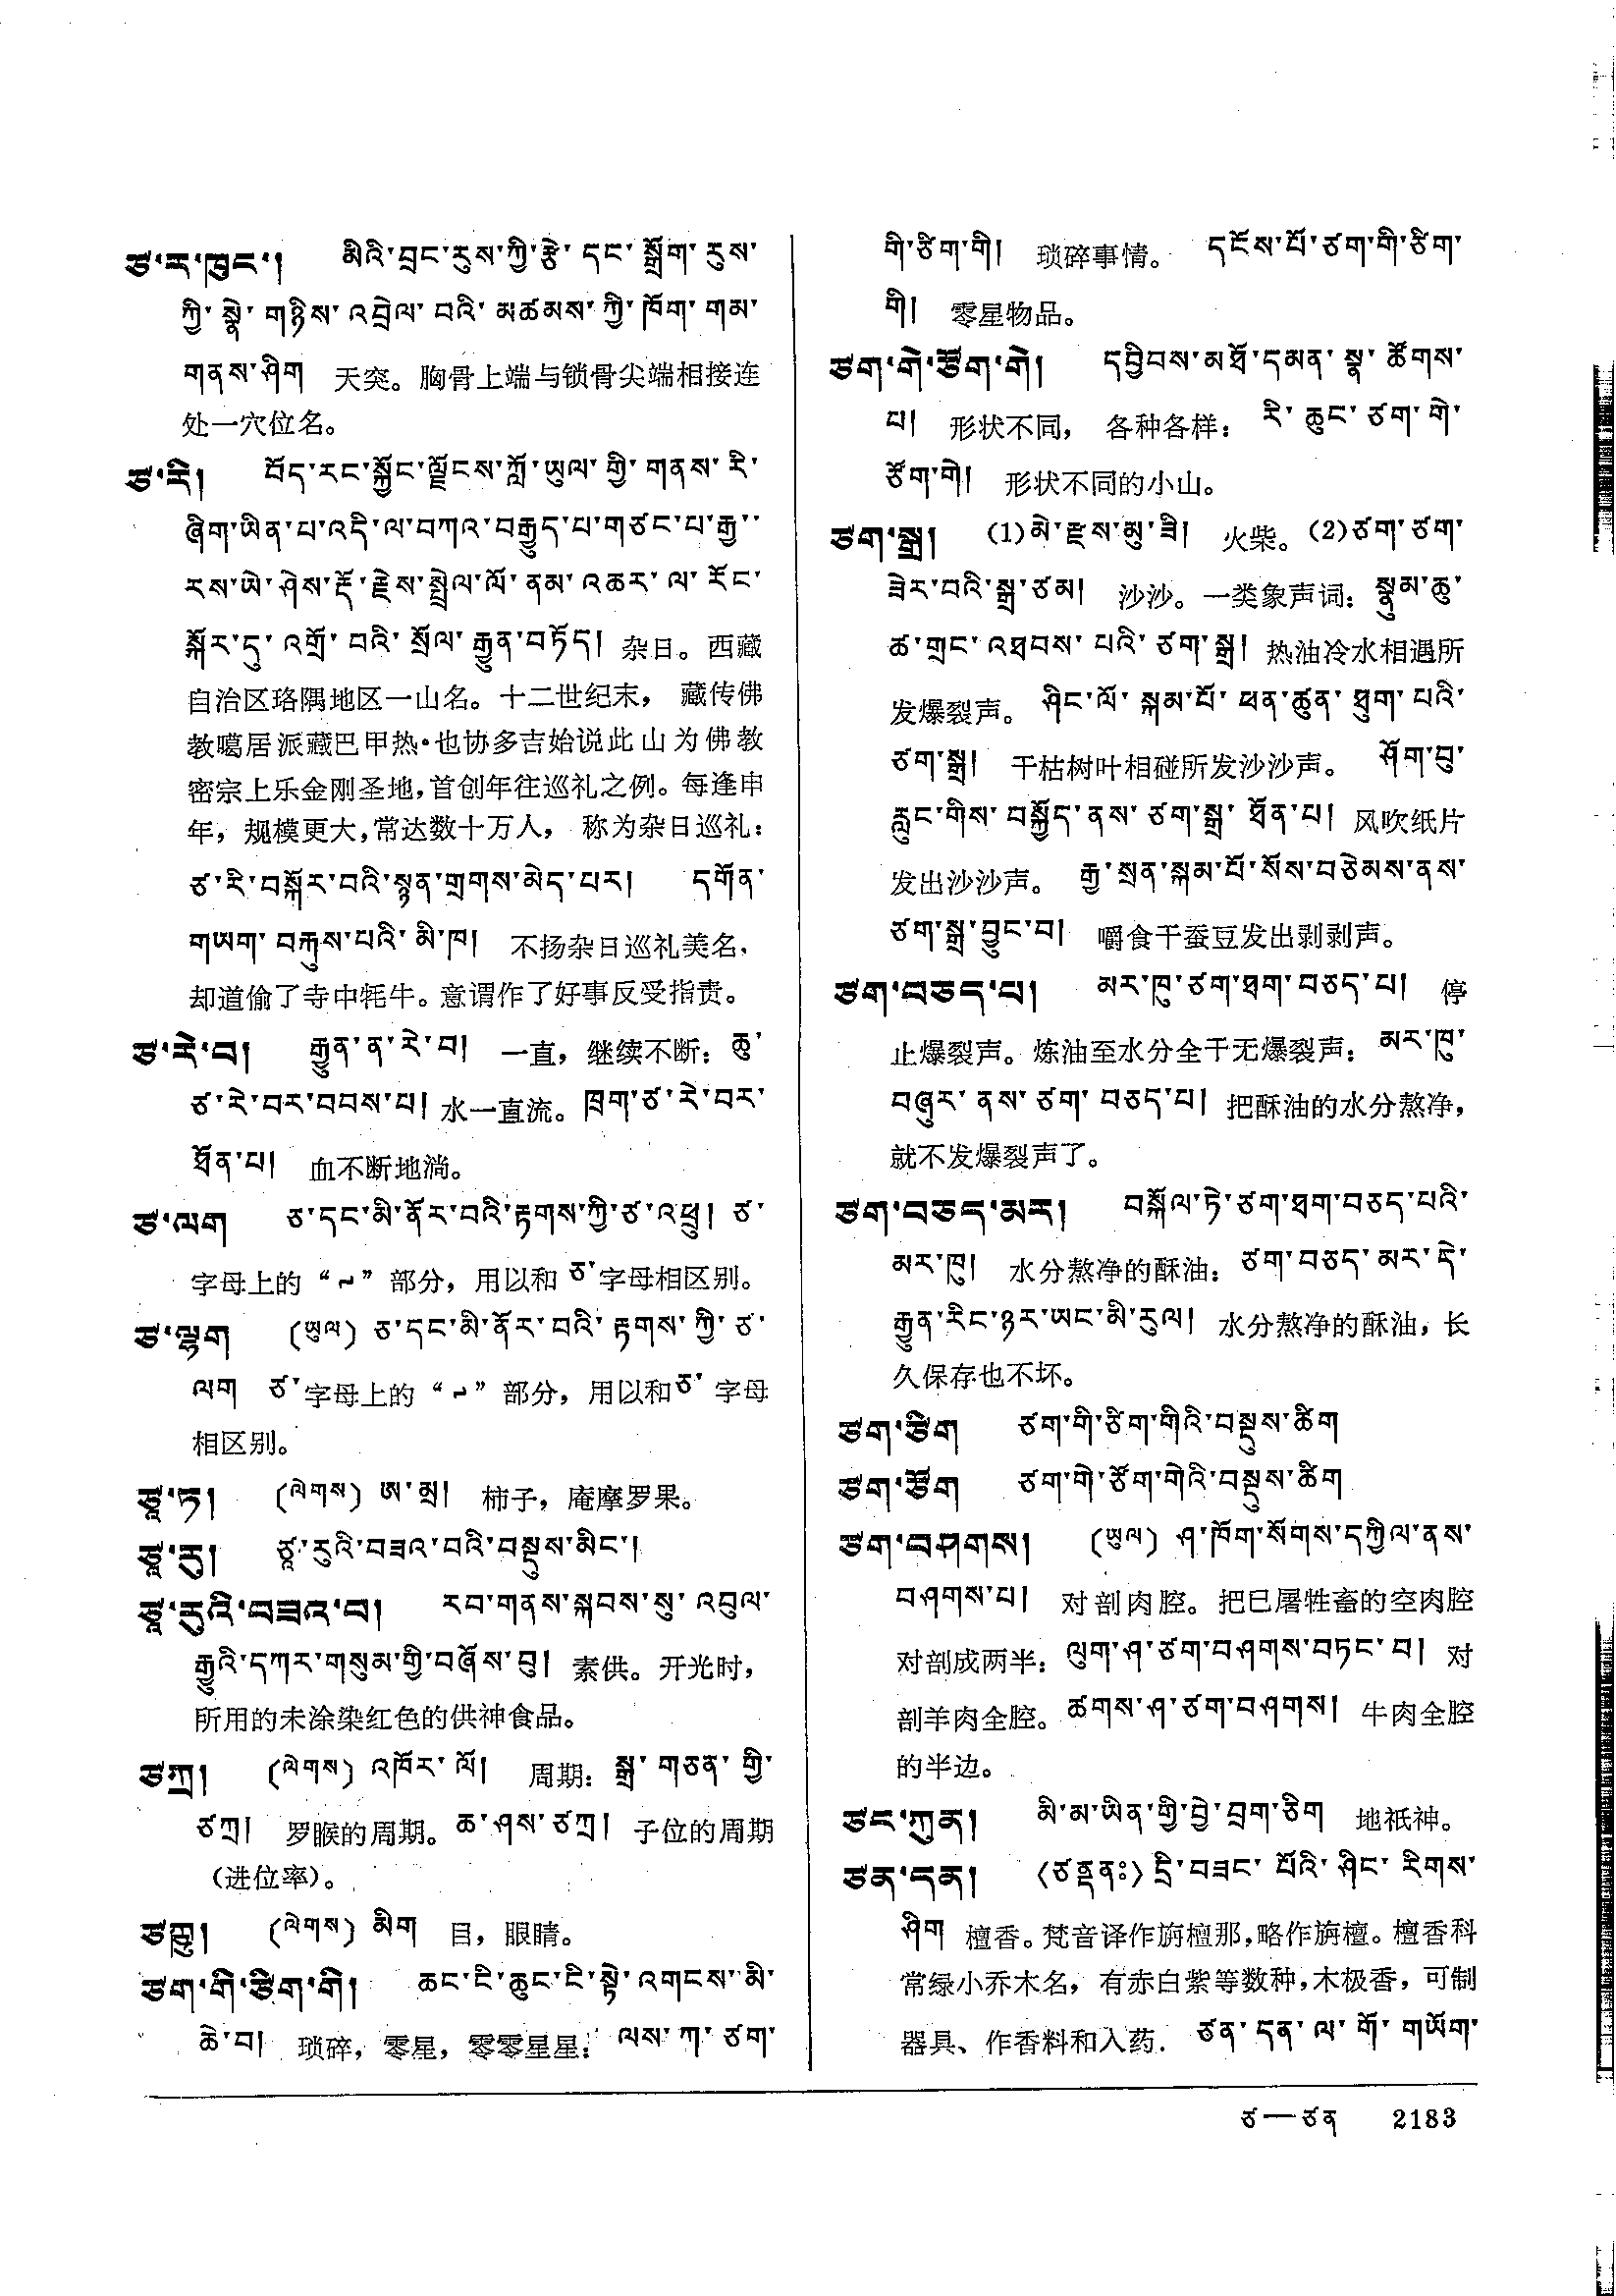 ཙ་ར་ཁུང་། མིའི་བྲང་རུས་ཀྱི་རྩེ་དང་སྒྲོག་རུས་
ཀྱི་སྣེ་གཉིས་འབྲེལ་བའི་མཚམས་ཀྱི་ཁོག་གམ་
གནས་ཤིག 天突。胸骨上端与锁骨尖端相接连
处一穴位名。
ཙ་རི། བོད་རང་སྐྱོང་ལྗོངས་ཀློ་ཡུལ་གྱི་གནས་རི་
ཞིག་ཡིན་པ་འདི་ལ་བཀའ་བརྒྱུད་པ་གཙང་པ་རྒྱ་
རས་ཡེ་ཤེས་རྡོ་རྗེས་སྤྲེལ་ལོ་ནམ་འཆར་ལ་རོང་
སྐོར་དུ་འགྲོ་བའི་སྲོལ་རྒྱུན་བཏོད། 杂日。西藏
自治区珞隅地区一山名。十二世纪末， 藏传佛
教噶居派藏巴甲热·也协多吉始说此山为佛教
密宗上乐金刚圣地，首创年往巡礼之例。每逢申
年，规模更大，常达数十万人， 称为杂日巡礼：
ཙ་རི་བསྐོར་བའི་སྙན་གྲགས་མེད་པར། དགོན་
གཡག་བརྐུས་པའི་མི་ཁ། 不扬杂日巡礼美名，
却道偷了寺中牦牛。意谓作了好事反受指责。
ཙ་རེ་བ། རྒྱུན་ན་རེ་བ། 一直，继续不断： ཆུ་
ཙ་རེ་བར་བབས་པ། 水一直流。ཁྲག་ཙ་རེ་བར་
ཐོན་པ། 血不断地淌。
ཙ་ལག ཅ་དང་མི་ནོར་བའི་རྟགས་ཀྱི་ཙ་འཕྲུ། ཙ་
字母上的“༹”部分，用以和 ཅ་字母相区别。
ཙ་ལྷག (ཡུལ) ཅ་དང་མི་ནོར་བའི་རྟགས་ཀྱི་ཙ་
ལག ཙ་字母上的“༹”部分，用以和ཅ་ 字母
相区别。
ཙཱུ་ཏ། (ལེགས) ཨ་མྲ། 柿子，庵摩罗果。
ཙཱ་རུ། ཙཱ་རུའི་བཟའ་བའི་བསྡུས་མིང་།
ཙཱ་རུའི་བཟའ་བ། རབ་གནས་སྐབས་སུ་འབུལ་
རྒྱུའི་དཀར་གསུམ་གྱི་བཞོས་བུ། 素供。开光时，
所用的未涂染红色的供神食品。
ཙཀྲ། (ལེགས) འཁོར་ལོ། 周期： སྒྲ་གཅན་གྱི་
ཙཀྲ། 罗睺的周期。ཆ་ཤས་ཙཀྲ། 子位的周期
（进位率）。
ཙཀྵུ། (ལེགས) མིག 目，眼睛。
ཙག་གི་ཙིག་གེ། ཆང་ངི་ཆུང་ངི་སྟེ་འགངས་མི་
ཆེ་བ། 琐碎，零星，零零星星： ལས་ཀ་ཙག་
གི་ཙིག་གི། 琐碎事情。 དངོས་པོ་ཙག་གི་ཙིག་
གི། 零星物品。
ཙག་གེ་ཙོག་གེ། དབྱིབས་མཐོ་དམན་སྣ་ཚོགས་
པ། 形状不同， 各种各样： རི་ཆུང་ཙག་གེ་
ཙོག་གེ། 形状不同的小山。
ཙག་སྒྲ། (1)མེ་རྫས་མུ་ཟི། 火柴。(2)ཙག་ཙག་
ཟེར་བའི་སྒྲ་ཙམ། 沙沙。一类象声词： སྣུམ་ཆུ་
ཚ་གྲང་འཐབས་པའི་ཙག་སྒྲ། 热油冷水相遇所
发爆裂声。 ཤིང་ལོ་སྐམ་པོ་ཕན་ཚུན་ཐུག་པའི་
ཙག་སྒྲ། 干枯树叶相碰所发沙沙声。 ཤོག་བུ་
རླུང་གིས་བསྐྱོད་ནས་ཙག་སྒྲ་ཐོན་པ། 风吹纸片
发出沙沙声。 རྒྱ་སྲན་སྐམ་པོ་སོས་བཅེམས་ནས་
ཙག་སྒྲ་བྱུང་བ། 嚼食干蚕豆发出剥剥声。
ཙག་བཅད་པ། མར་ཁུ་ཙག་ཐག་བཅད་པ། 停
止爆裂声。炼油至水分全干无爆裂声： མར་ཁུ་
བཞུར་ནས་ཙག་བཅད་པ། 把酥油的水分熬净，
就不发爆裂声了。
ཙག་བཅད་མར། བསྐོལ་ཏེ་ཙག་ཐག་བཅད་པའི་
མར་ཁུ། 水分熬净的酥油： ཙག་བཅད་མར་དེ་
རྒྱུན་རིང་ཉར་ཡང་མི་རུལ། 水分熬净的酥油，长
久保存也不坏。
ཙག་ཙིག ཙག་གི་ཙིག་གིའི་བསྡུས་ཚིག
ཙག་ཙོག ཙག་གེ་ཙོག་གེའི་བསྡུས་ཚིག
ཙག་བཤགས། (ཡུལ) ཤ་ཁོག་སོགས་དཀྱིལ་ནས་
བཤགས་པ། 对剖肉腔。把已屠牲畜的空肉腔
对剖成两半： ལུག་ཤ་ཙག་བཤགས་བཏང་བ། 对
剖羊肉全腔。ཚགས་ཤ་ཙག་བཤགས། 牛肉全腔
的半边。
ཙང་ཀུན། མི་མ་ཡིན་གྱི་བྱེ་བྲག་ཅིག 地祇神。
ཙན་དན། (ཙནྡནཿ) དྲི་བཟང་པོའི་ཤིང་རིགས་
ཤིག 檀香。梵音译作旃檀那，略作旃檀。檀香科
常绿小乔木名，有赤白紫等数种，木极香，可制
器具、作香料和入药． ཙན་དན་ལ་གོ་གཡོག་
ཙ—ཙན 2183